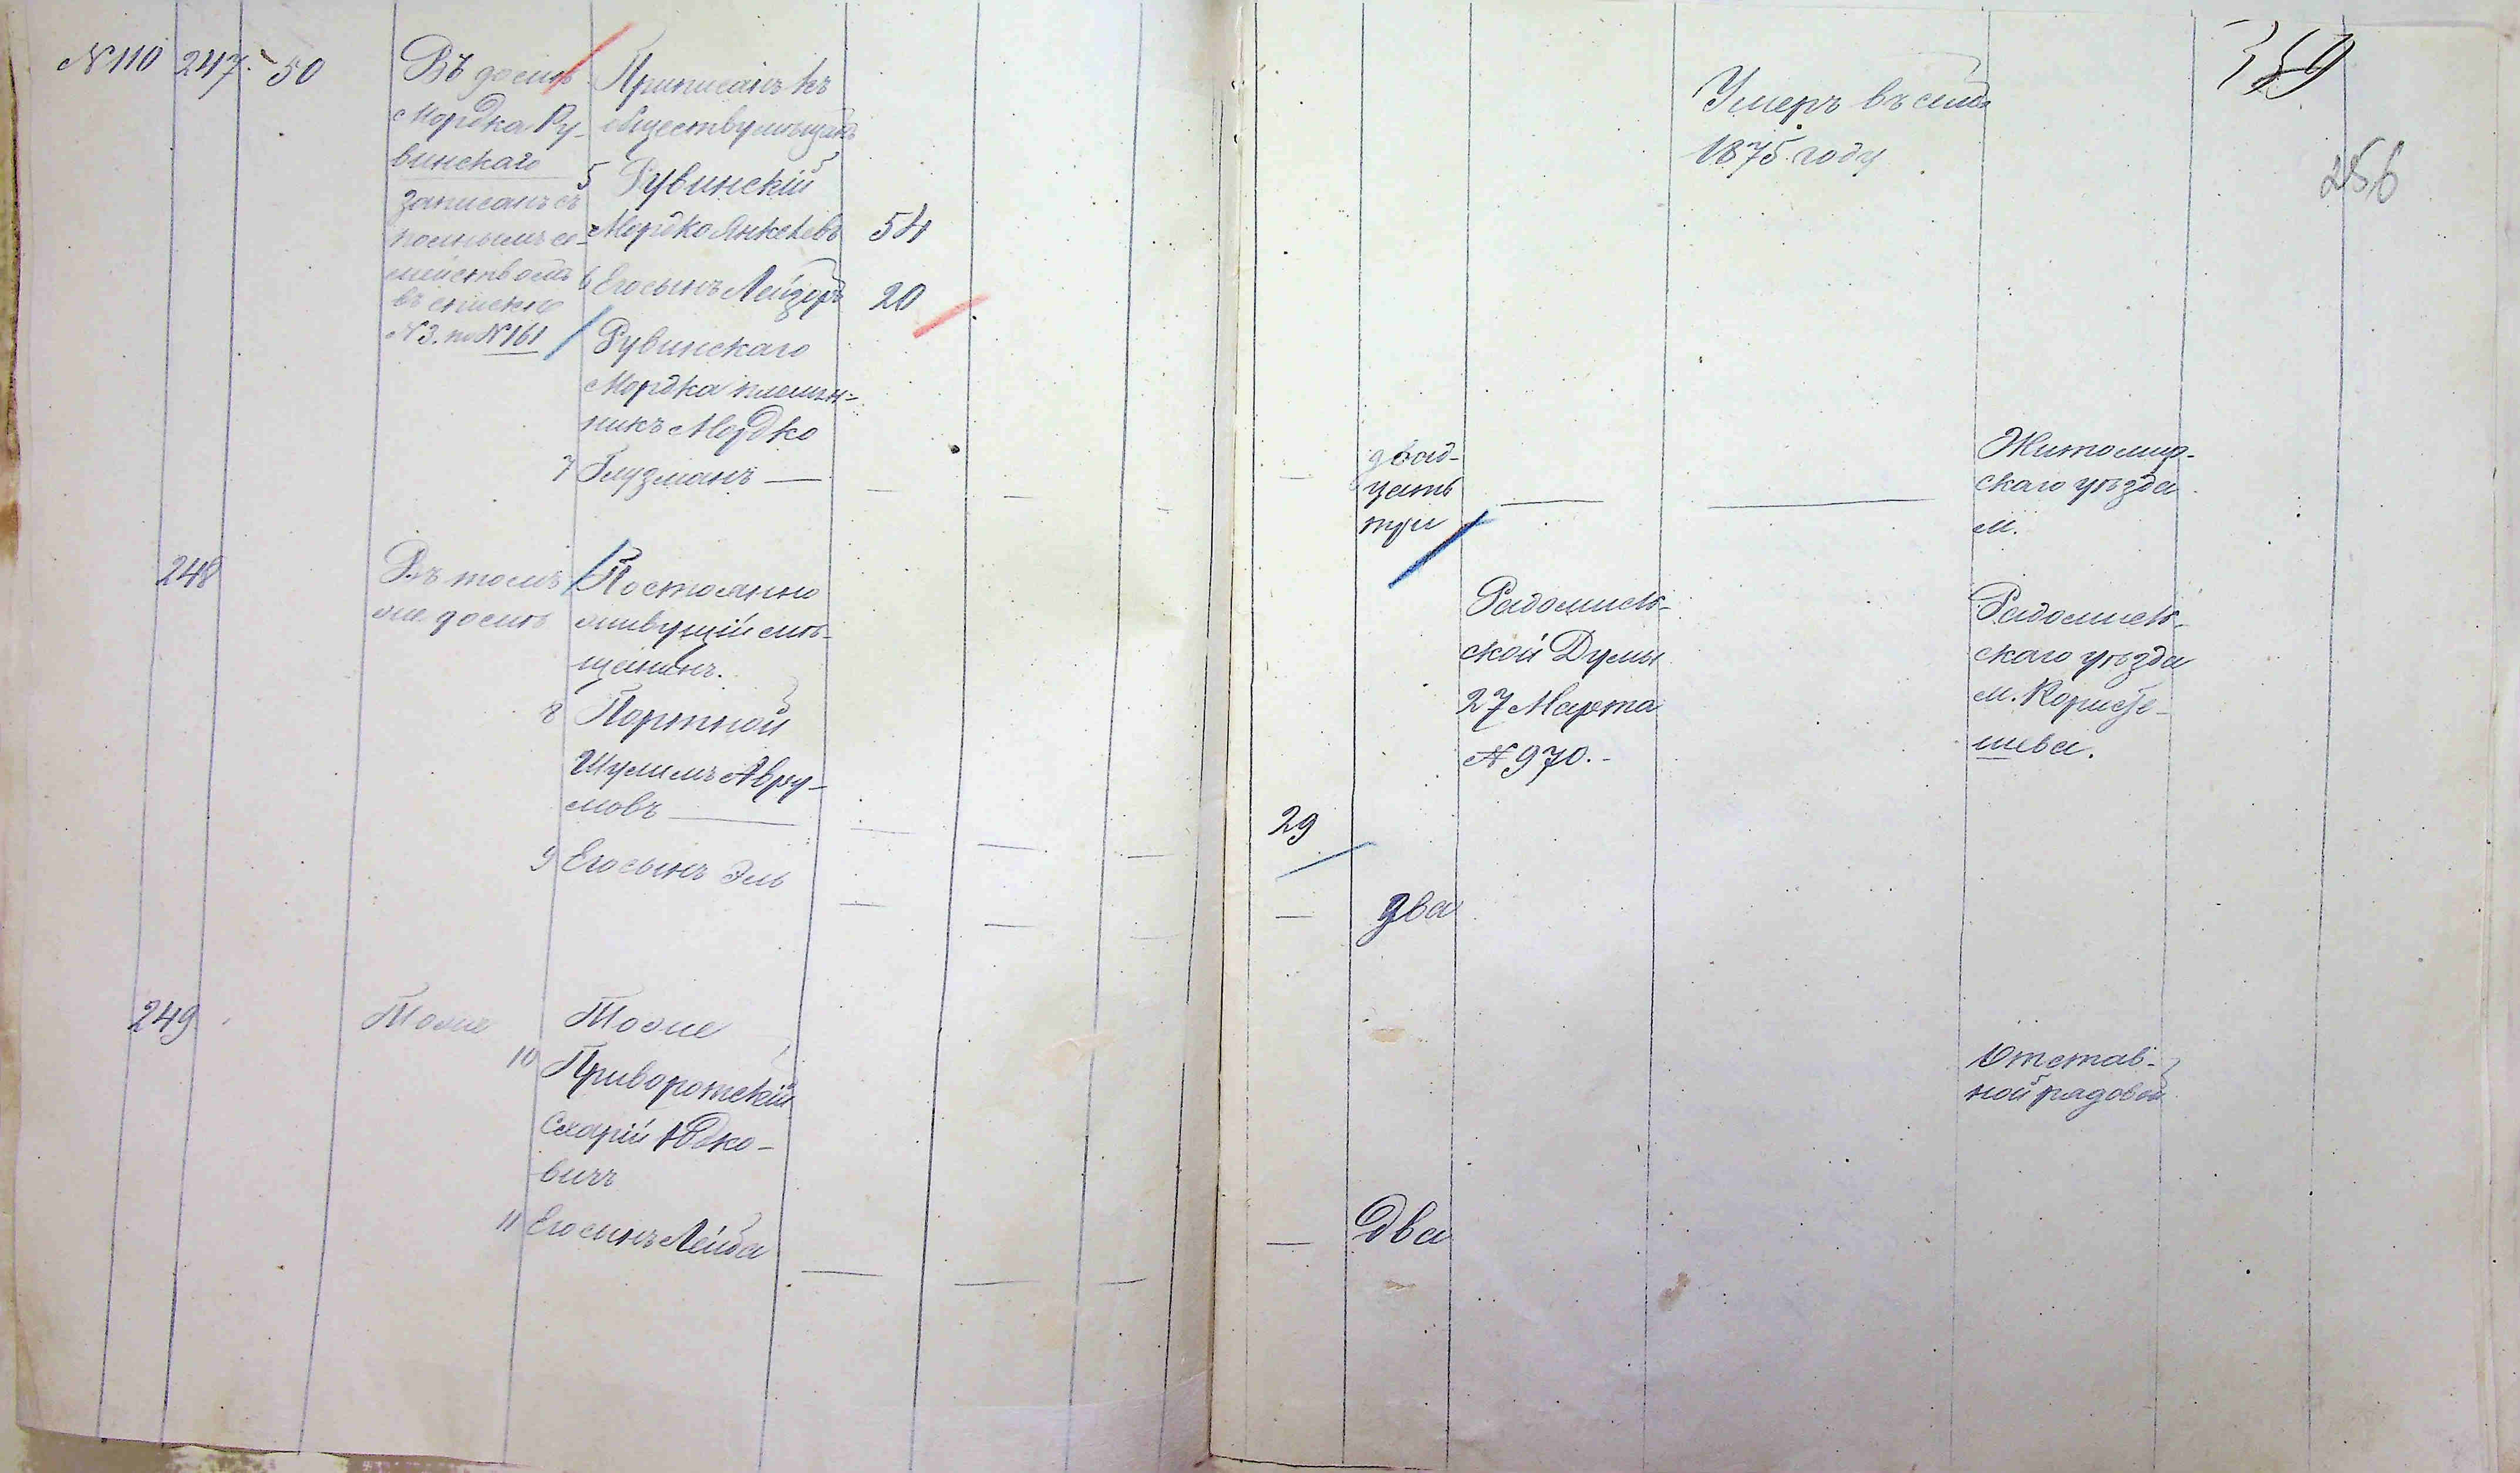 № 110 247. 50
Въ домѣ
Мордка Ру-
винскаго
записанъ съ
полнымъ се-
мействомъ
въ спискѣ
№ 3. по № 161
Приписанъ къ
обществу мѣщанъ
5 Рувинскій
Мордко Янкелевъ 54
6 Его сынъ Лейзоръ 20
Рувинскаго
Мордка племян-
никъ Мордко
7 Глузманъ —
248
Въ томъ
же домѣ
Постоянно
живущій мѣ-
щанинъ.
8 Портной
Шулимъ Авру-
мовъ —
9 Его сынъ Эль
249
Тоже
Тоже
10 Приворотскій
Схарій Юдко-
вичъ
11 Его сынъ Лейба
359
256
Умеръ въ семъ
1875 году
двад-
цать
три
Житомир-
скаго уѣзда
м.
Радомысль-
ской Думы
27 Марта
№ 970.-
Радомысль-
скаго уѣзда
м. Короście-
шева.
29
два
Отстав-
ной рядовой
Два